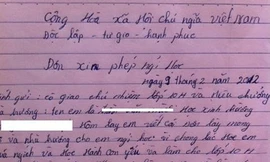 Cộng Hòa xã Hội chủ nghĩa việt Nam
Độc lập - tự do - hạnh phúc
Đơn xin phép nghỉ Học
ngày 9 tháng 2 năm 2012
gửi : cô giáo chủ nhiệm lớp 10H và nhà trường
trường : tên em là Học sinh trường
Hôm nay em viết cái đơn này mong
và nhà trường cho em nghỉ học vì chồng bỏ Học em
nghịch và Học Hành còn yếu và kém cho lớp 10 H